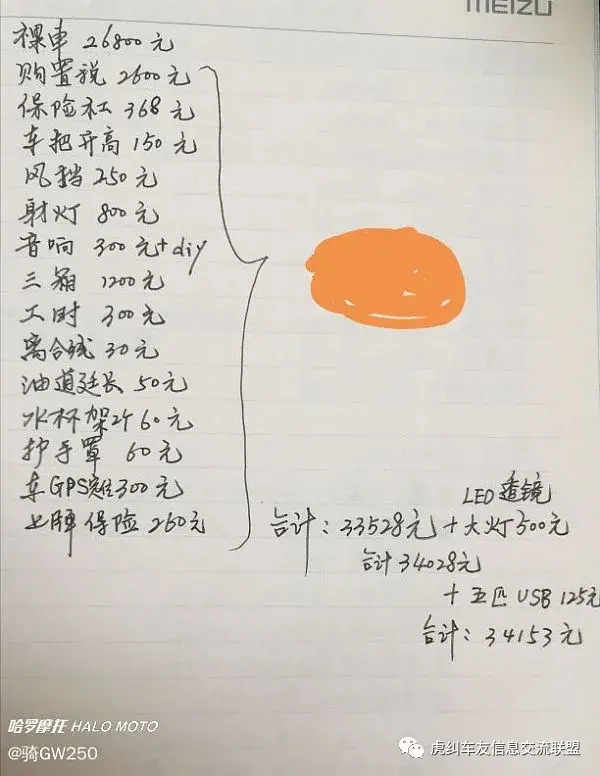 MEIZU
裸車 26800元
购置税 2600元
保险杠 368元
车把升高 150元
风挡 250元
射灯 800元
音响 300元+diy
三箱 1200元
工时 300元
离合线 30元
油道延长 50元
水杯架2个 60元
护手罩 60元
车GPS 300元
上牌保险 260元
LED透镜
合计：33528元+大灯500元
合计 34028元
+五匹USB 125元
合计：34153元
哈罗摩托 HALO MOTO
@骑GW250
虎纠车友信息交流联盟